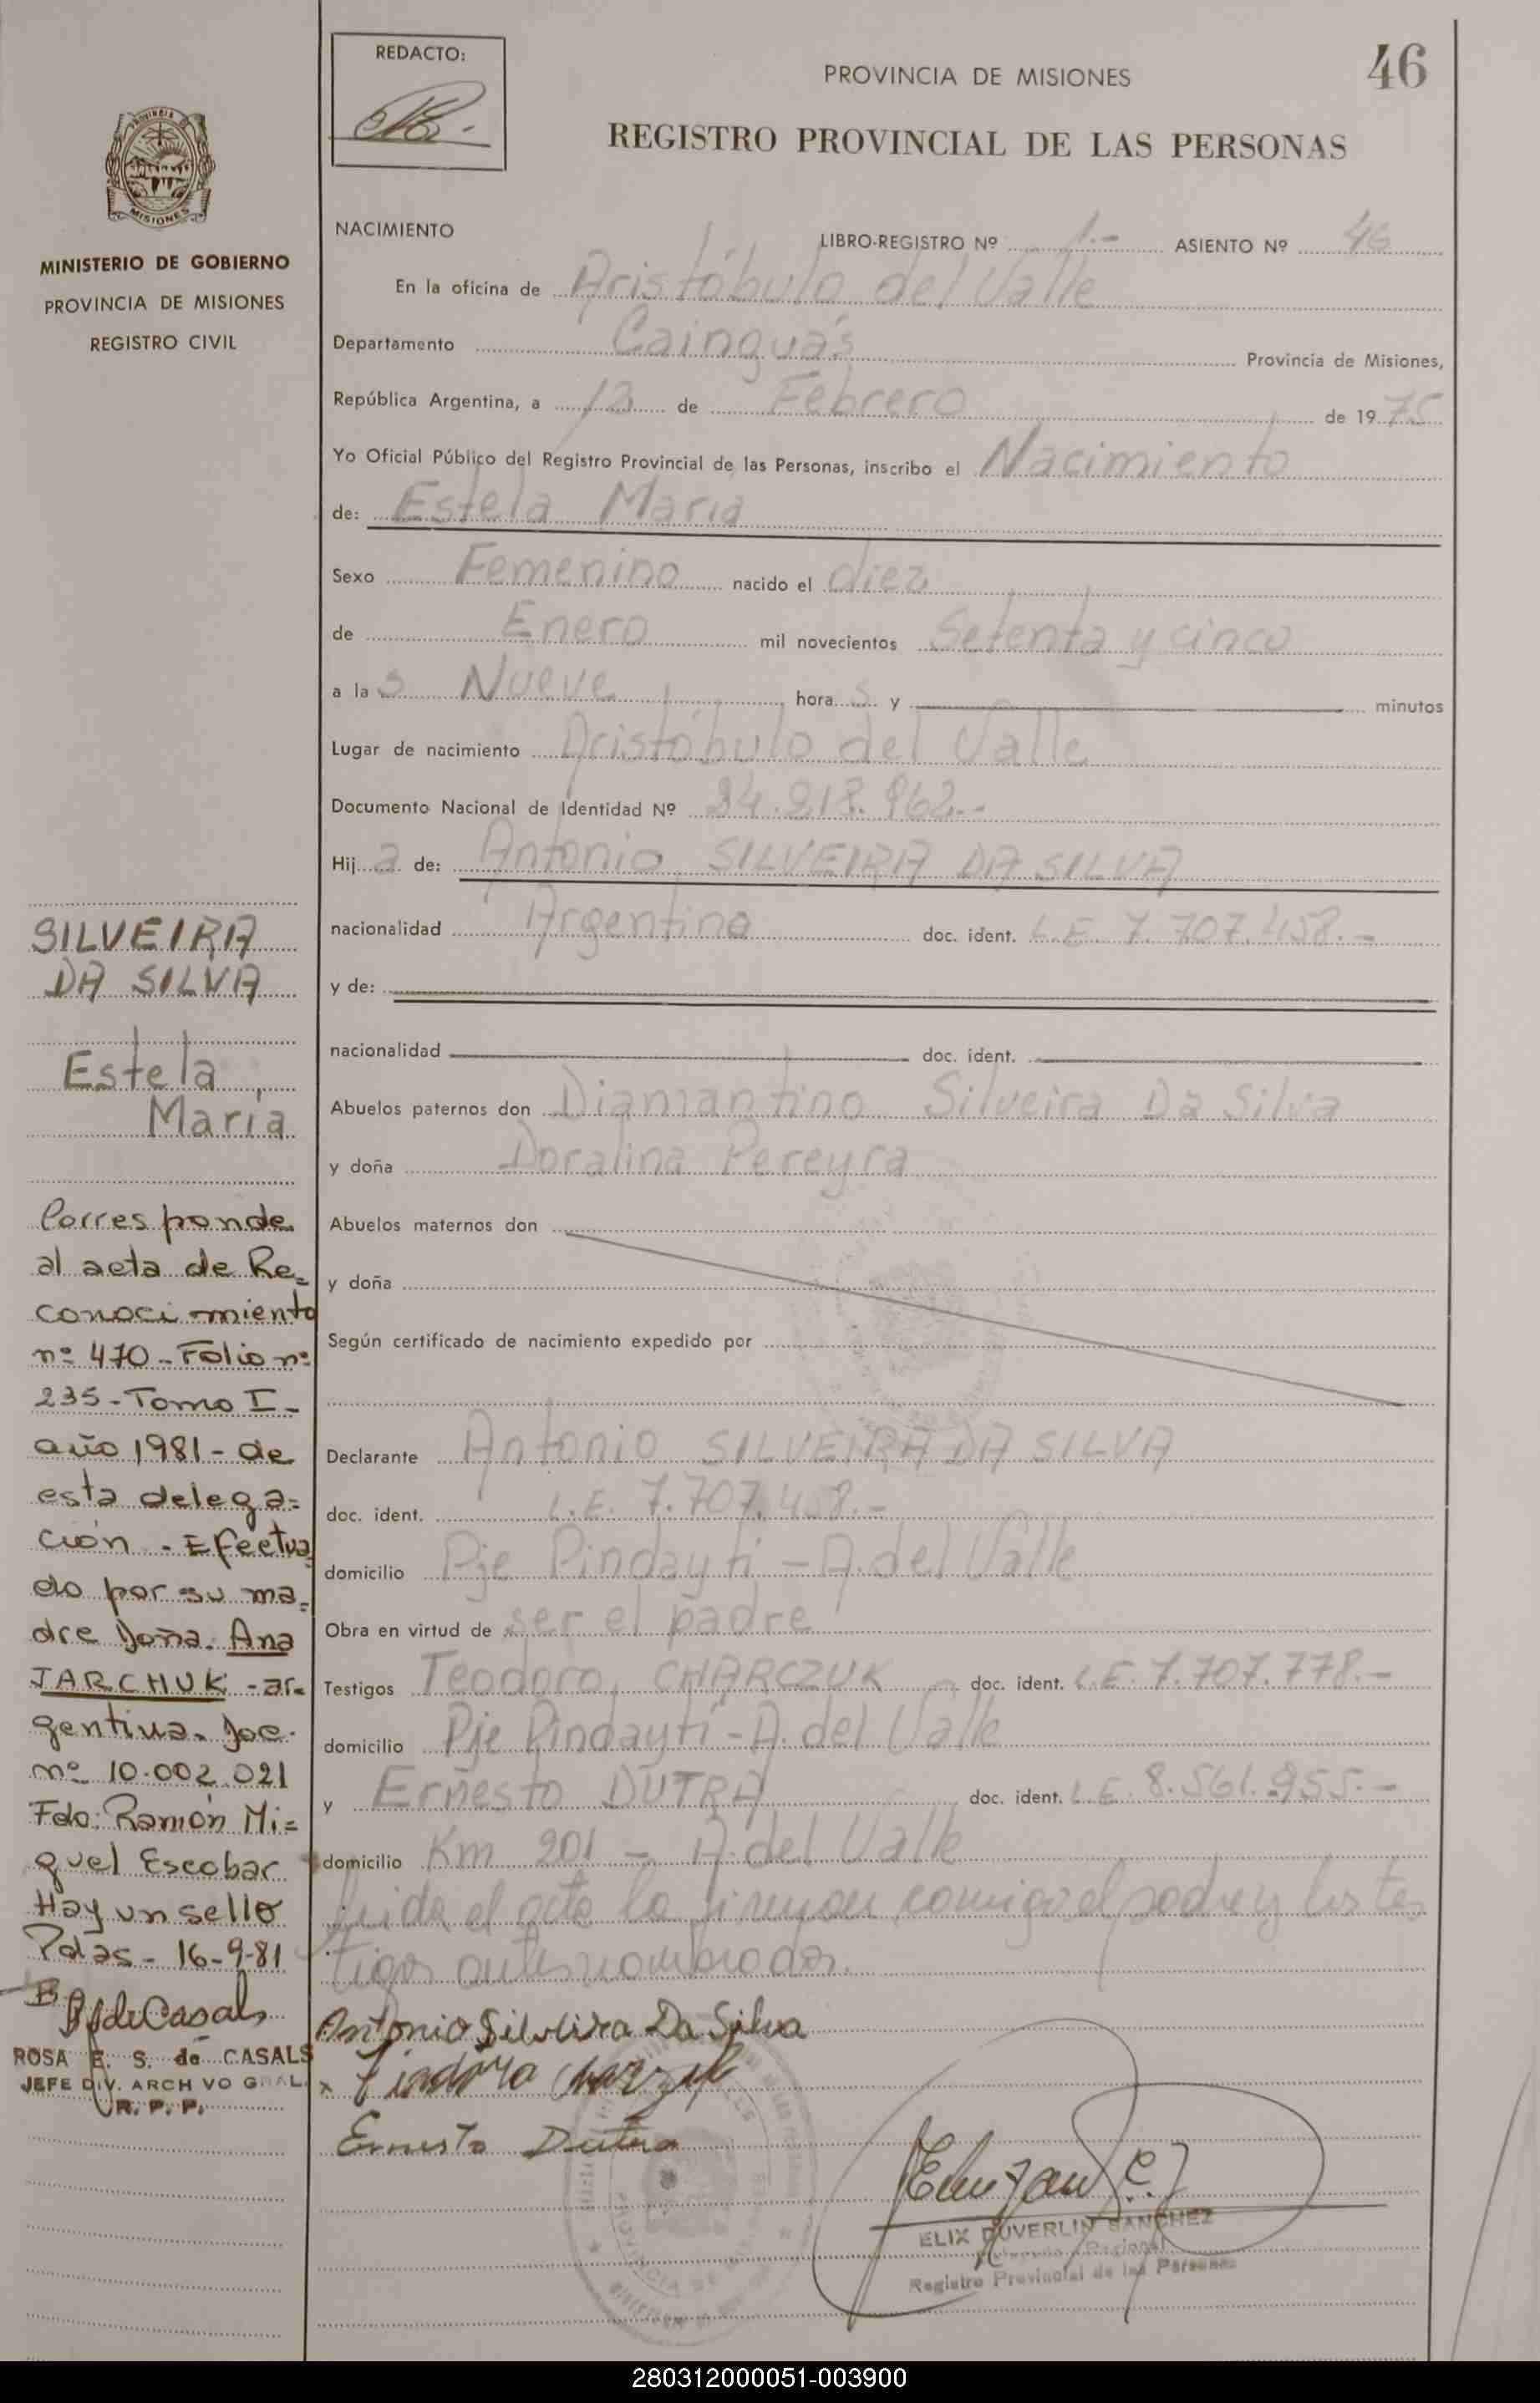 46
REDACTO:
PROVINCIA DE MISIONES
REGISTRO PROVINCIAL DE LAS PERSONAS
PROVINCIA DE
MISIONES
MINISTERIO DE GOBIERNO
PROVINCIA DE MISIONES
REGISTRO CIVIL
NACIMIENTO
LIBRO-REGISTRO Nº 1.- ASIENTO Nº 46
En la oficina de Aristóbulo del Valle
Departamento Cainguás Provincia de Misiones,
República Argentina, a 12 de Febrero de 1975
Yo Oficial Público del Registro Provincial de las Personas, inscribo el Nacimiento
de: Estela María
Sexo Femenino nacido el diez
de Enero mil novecientos Setenta y cinco
a las Nueve horas y minutos
Lugar de nacimiento Aristóbulo del Valle
Documento Nacional de Identidad Nº
Hija de: Antonio SILVEIRA DA SILVA
nacionalidad Argentina doc. ident. L.E. 7.707.458.-
y de:
nacionalidad doc. ident.
Abuelos paternos don Diamantino Silveira Da Silva
y doña Doralina Pereyra
Abuelos maternos don
y doña
Según certificado de nacimiento expedido por
Declarante Antonio SILVEIRA DA SILVA
doc. ident. L.E. 7.707.4
domicilio Pje Pindaytí - A. del Valle
Obra en virtud de ser el padre
Testigos Teodoro CHARCZUK doc. ident. L.E. 7.707.778.-
domicilio Pje Pindaytí - A. del Valle
y Ernesto DUTRA doc. ident. L.E. 8.561.955.-
domicilio Km 201 - A. del Valle
leida el acta la firman comigo el padre y los tes
tigos antes nombrados.
Antonio Silveira Da Silva
Ernesto Dutra
ELIX DUVERLIN SANCHEZ
Registro Provincial de las Personas
SILVEIRA
DA SILVA
Estela
María
Corresponde
al acta de Re=
conocimiento
nº 470 - Folio nº
235 - Tomo I -
año 1981 - de
esta delega=
ción - Efectua
do por su ma=
dre Doña. Ana
JARCHUK - ar=
gentina. Doc.
nº 10.002.021
Fdo: Ramón Mi=
guel Escobar
Hay un sello
Pdas - 16-9-81
ROSA E. S. de CASALS
JEFE DIV. ARCH VO GRAL.
R. P. P.
280312000051-003900